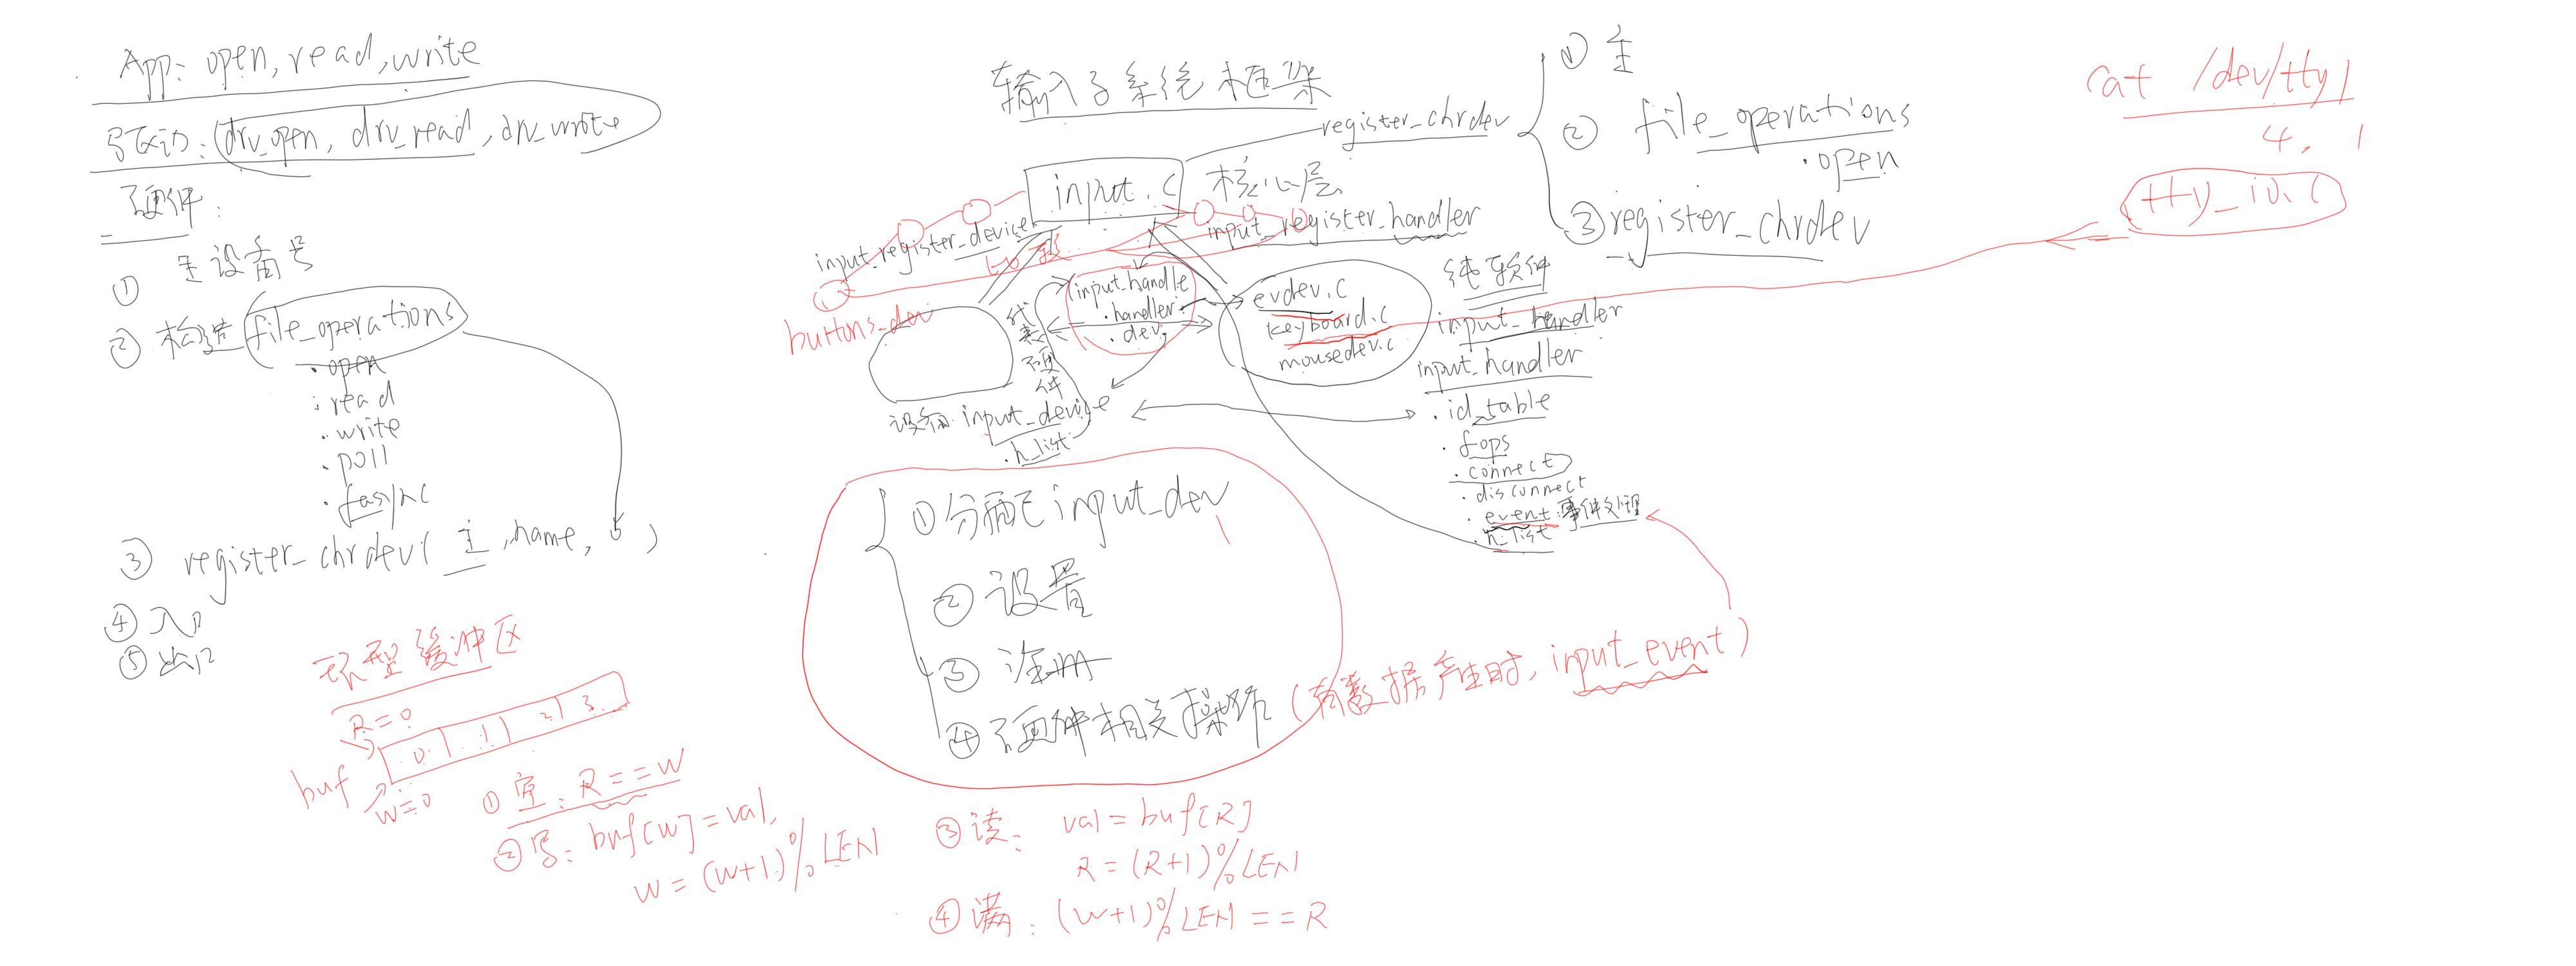 App: open, read, write
写驱动: (drv_open, drv_read, drv_write
硬件:
① 主设备号
② 构造 file_operations
.open
.read
.write
.poll
.fasync
③ register_chrdev( 主, name, )
④ 入口
⑤ 出口
环型缓冲区
R=0
0 1 2 3
buf
W=0
① 空: R==W
② 写: buf[W]=val,
W=(W+1)%LEN
③ 读: val=buf[R]
R=(R+1)%LEN
④ 满: (W+1)%LEN==R
输入子系统框架
input.c 核心层
register_chrdev
① 主
② file_operations
.open
③ register_chrdev
input_register_device
input_register_handler
buttons_dev
代表硬件
input_handle
.handler
.dev
evdev.c
keyboard.c
mousedev.c
纯软件
input_handler
设备 input_device
.h_list
input_handler
.id_table
.fops
.connect
.disconnect
.event:事件处理
.h_list
① 分配 input_dev
② 设置
③ 注册
④ 硬件相关操作 (有数据产生时, input_event)
cat /dev/tty1
4, 1
tty_io.c